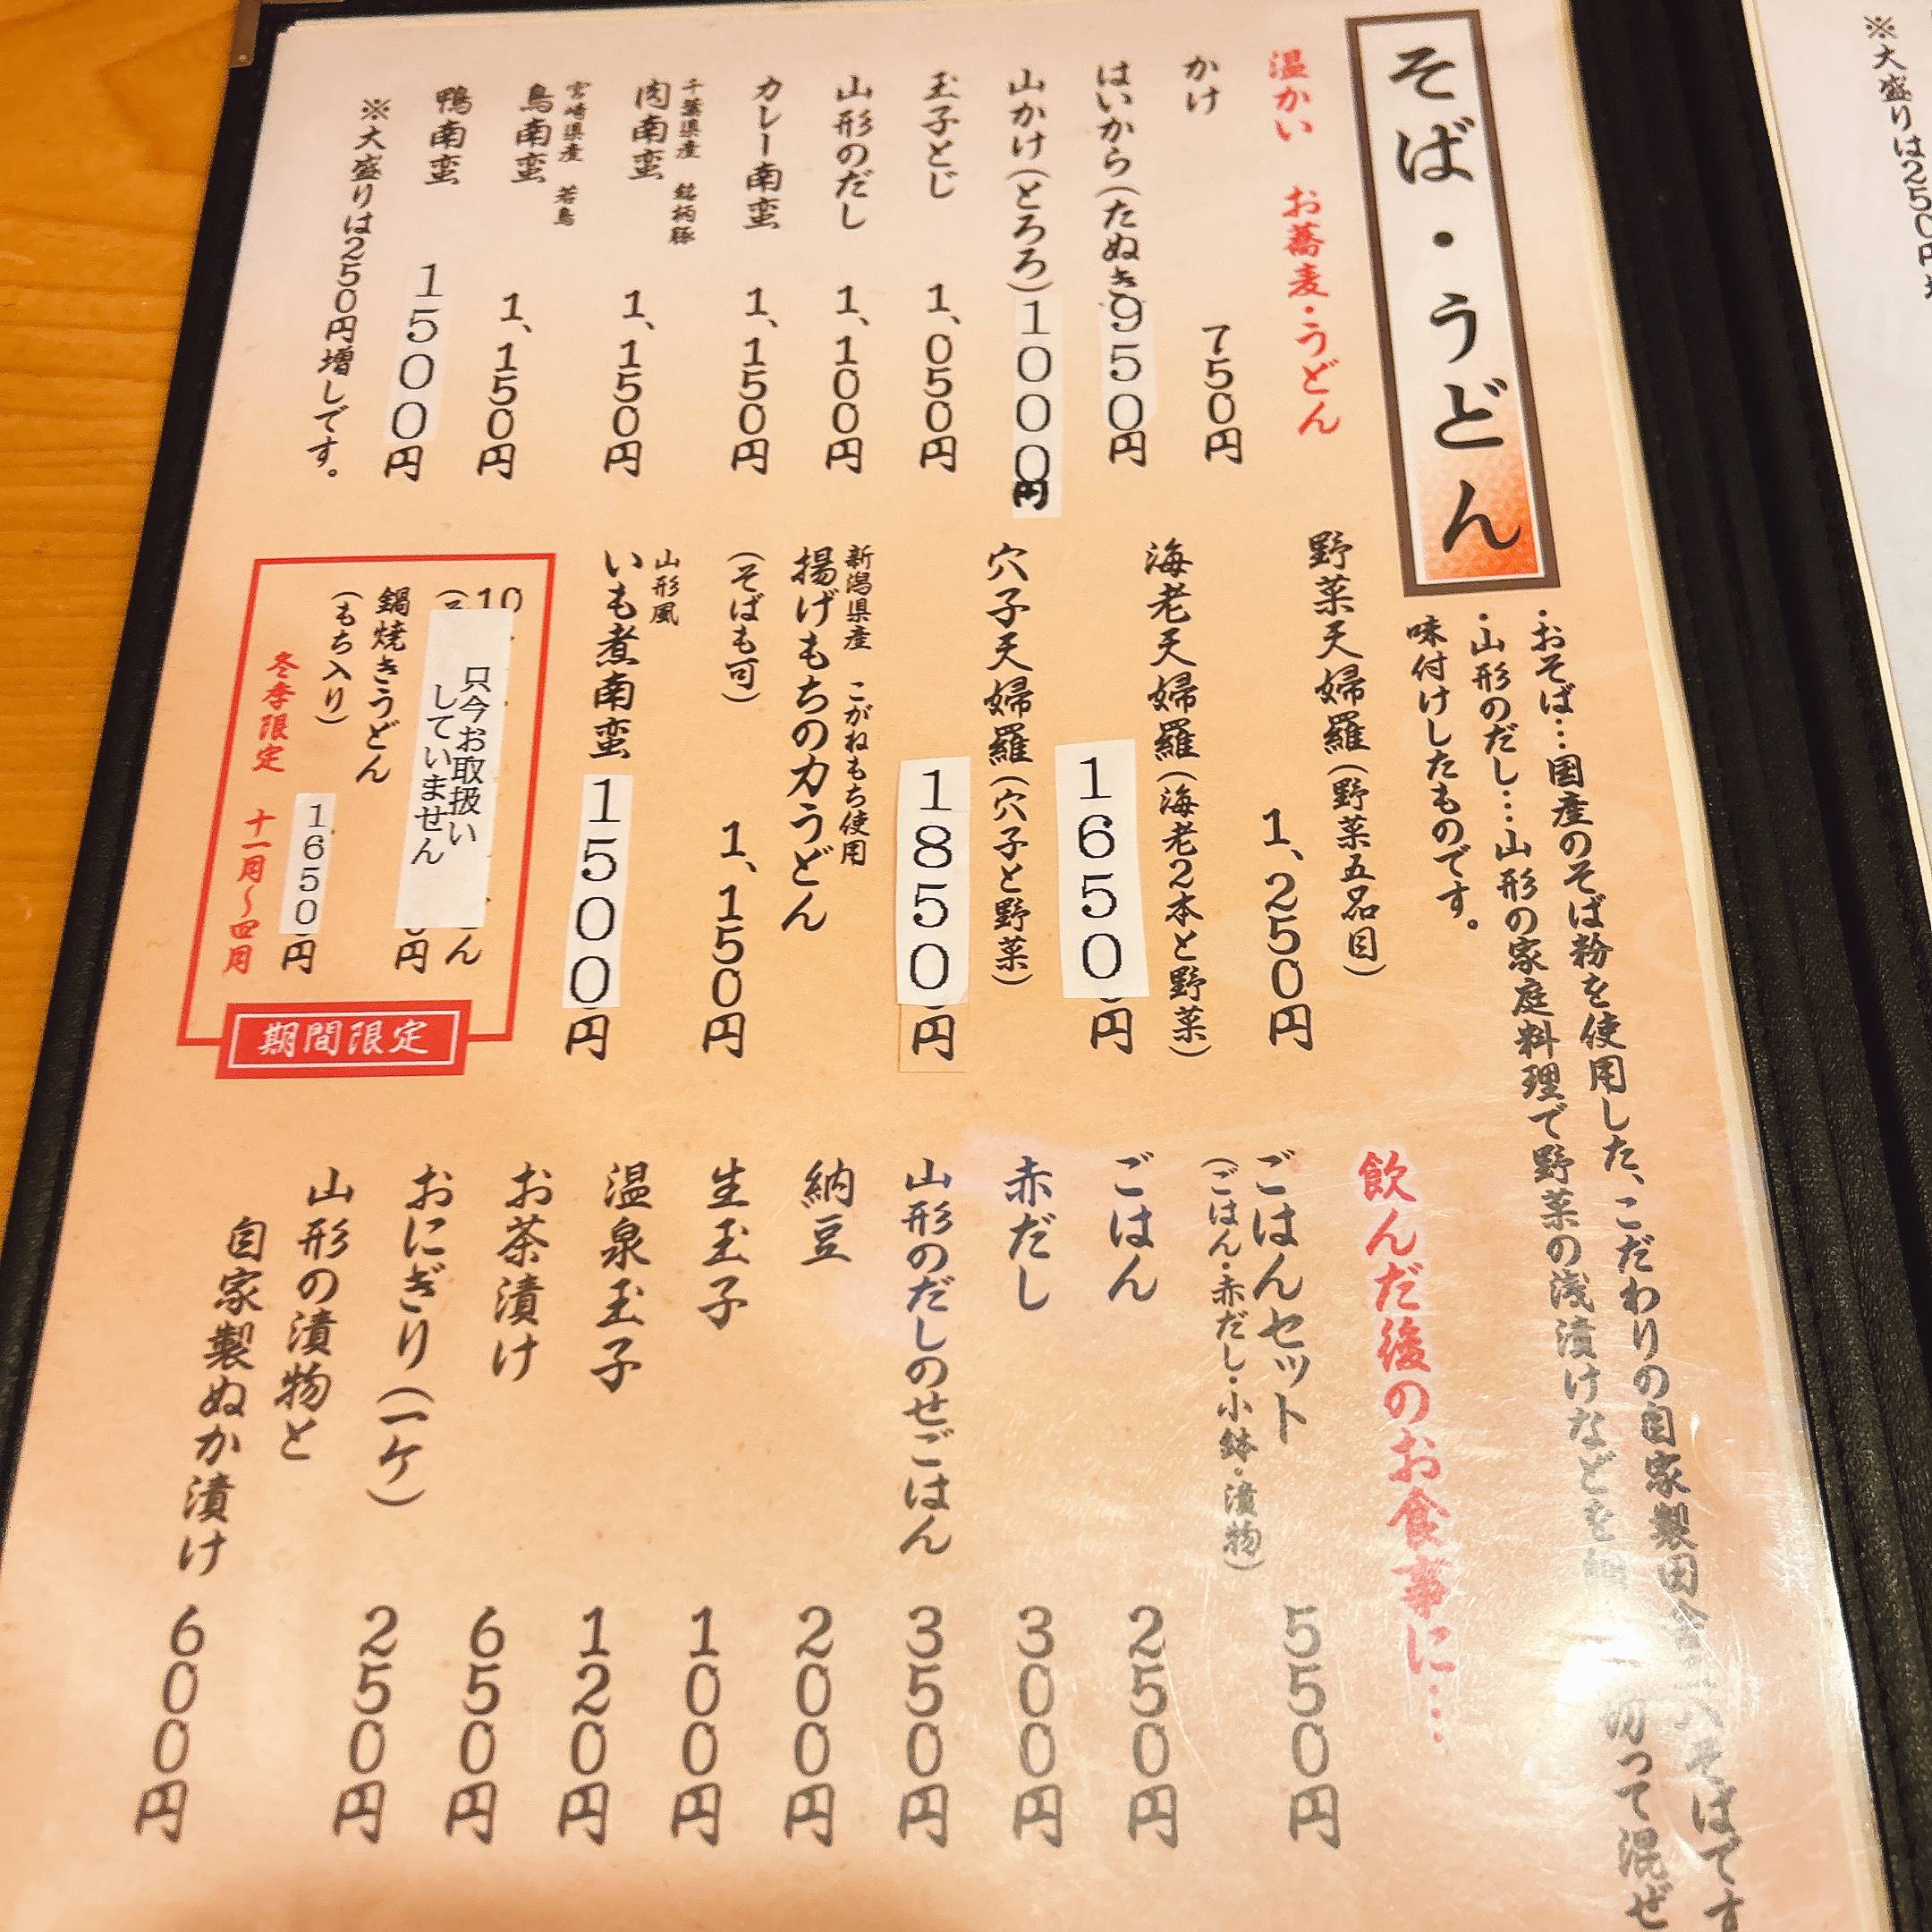 そば・うどん
・おそば…国産のそば粉を使用した、こだわりの自家製田舎二八そばです
・山形のだし…山形の家庭料理で野菜の浅漬けなどを細 切って混ぜ
味付けしたものです。
温かい お蕎麦・うどん
かけ 750円
はいから(たぬき 950円
山かけ(とろろ) 1000円
玉子とじ 1、050円
山形のだし 1、100円
カレー南蛮 1、150円
千葉県産 銘柄豚
肉南蛮 1、150円
宮崎県産 若鳥
鳥南蛮 1、150円
鴨南蛮 1500円
※大盛りは250円増しです。
野菜天婦羅(野菜五品目)
1、250円
海老天婦羅(海老2本と野菜)
1650円
穴子天婦羅(穴子と野菜)
1850円
新潟県産 こがねもち使用
揚げもちの力うどん
(そばも可) 1、150円
山形風
いも煮南蛮 1500円
10 ん
只今お取扱い
していません
円
鍋焼きうどん
(もち入り) 1650円
冬季限定 十一月〜四月
期間限定
飲んだ後のお食事に…
ごはんセット 550円
(ごはん・赤だし・小鉢・漬物)
ごはん 250円
赤だし 300円
山形のだしのせごはん 350円
納豆 200円
生玉子 100円
温泉玉子 120円
お茶漬け 650円
おにぎり(一ケ) 250円
山形の漬物と
自家製ぬか漬け 600円
※大盛りは250円